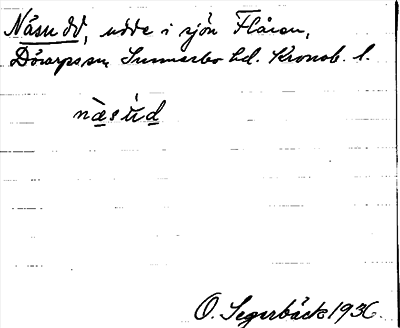 Näsudd, udde i sjön Flåren,
Dörarps sn Sunnerbo hd. Kronob. l.
næ̀sùd
O. Segerbäck 1936.